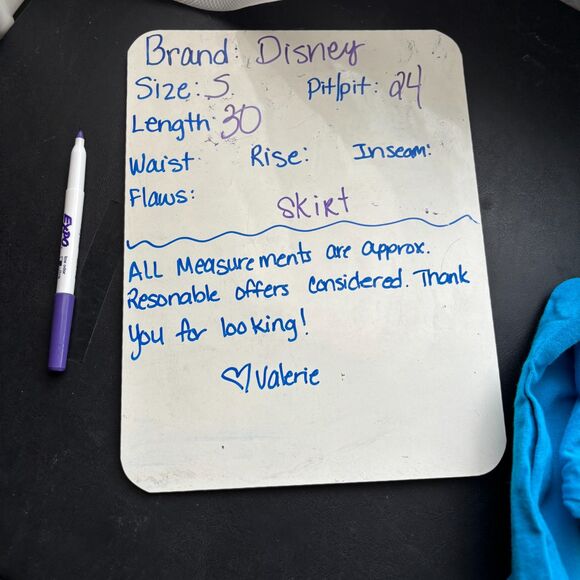 Brand: Disney
Size: S Pit/pit: 24
Length: 30
Waist Rise: Inseam:
Flaws:
Skirt
ALL Measurements are approx.
Resonable offers Considered. Thank
You for looking!
♡ Valerie
EXPO